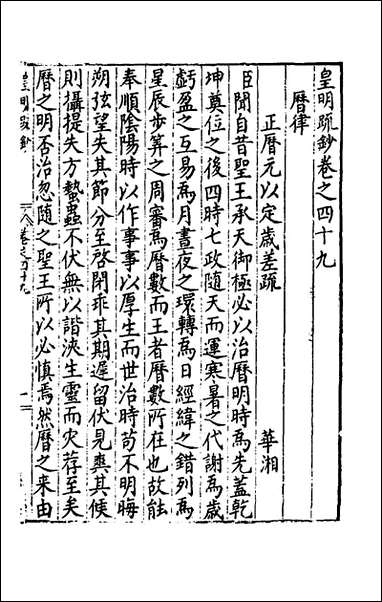 皇明疏鈔卷之四十九
曆律
正曆元以定歲差疏 華湘
臣聞自昔聖王承天御極必以治曆明時爲先蓋乾
坤奠位之後四時七政隨天而運寒暑之代謝爲歲
虧盈之互易爲月晝夜之環轉爲日經緯之錯列爲
星辰步算之周審爲曆數而王者曆數所在也故能
奉順陰陽時以作事事以厚生而世治時苟不明晦
朔弦望失其節分至啓閉乖其期遲留伏見爽其候
則攝提失方蟄蟲不伏無以諧浹生靈而灾荐至矣
曆之明否治忽隨之聖王所以必慎焉然曆之來由
皇明疏鈔 卷之四十九 一